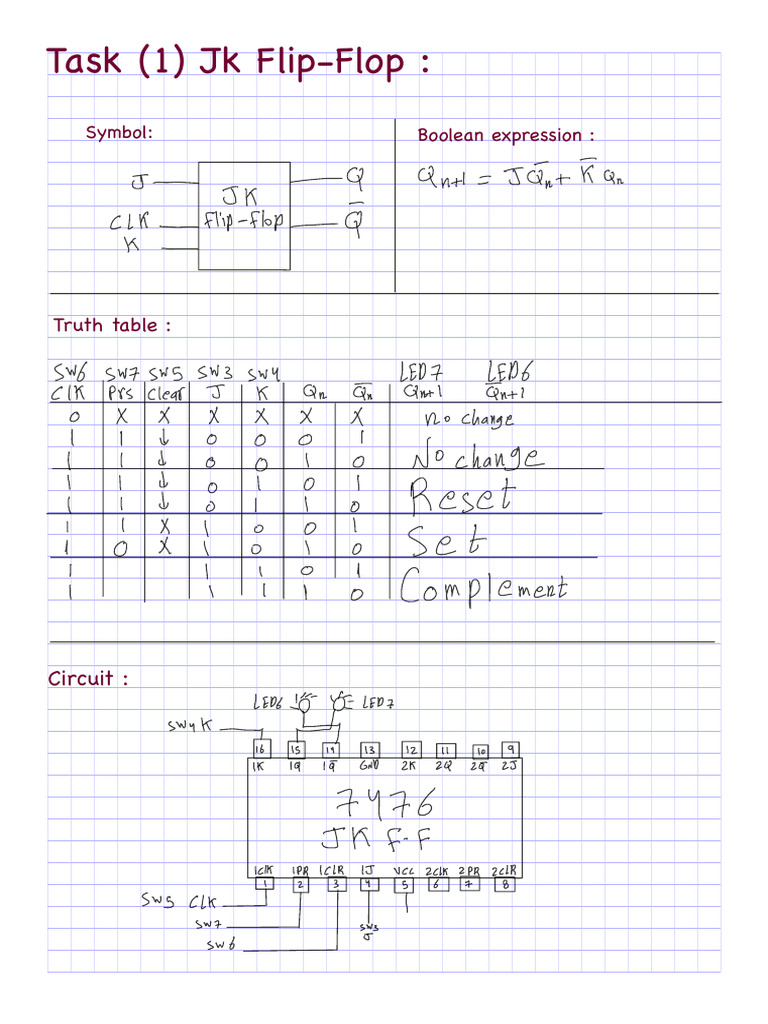 Task (1) Jk Flip-Flop :
Symbol:
Boolean expression :
J Q
JK
CLK flip-flop Q̅
K
Qn+1 = J Q̅n + K̅ Qn
Truth table :
SW6 SW7 SW5 SW3 SW4 LED7 LED6
CLK Prs Clear J K Qn Q̅n Qn+1 Q̅n+1
0 X X X X X X no change
1 1 ↓ 0 0 0 1
1 1 ↓ 0 0 1 0 No change
1 1 ↓ 0 1 0 1
1 1 ↓ 0 1 1 0 Reset
1 1 X 1 0 0 1
1 0 X 1 0 1 0 Set
1 1 1 0 1
1 1 1 1 0 Complement
Circuit :
LED6 LED7
SW4 K
16 15 14 13 12 11 10 9
1K 1Q 1Q̅ GND 2K 2Q 2Q̅ 2J
7476
JK F-F
1CLK 1PR 1CLR 1J VCC 2CLK 2PR 2CLR
1 2 3 4 5 6 7 8
SW5 CLK
SW7
SW3
J
SW6